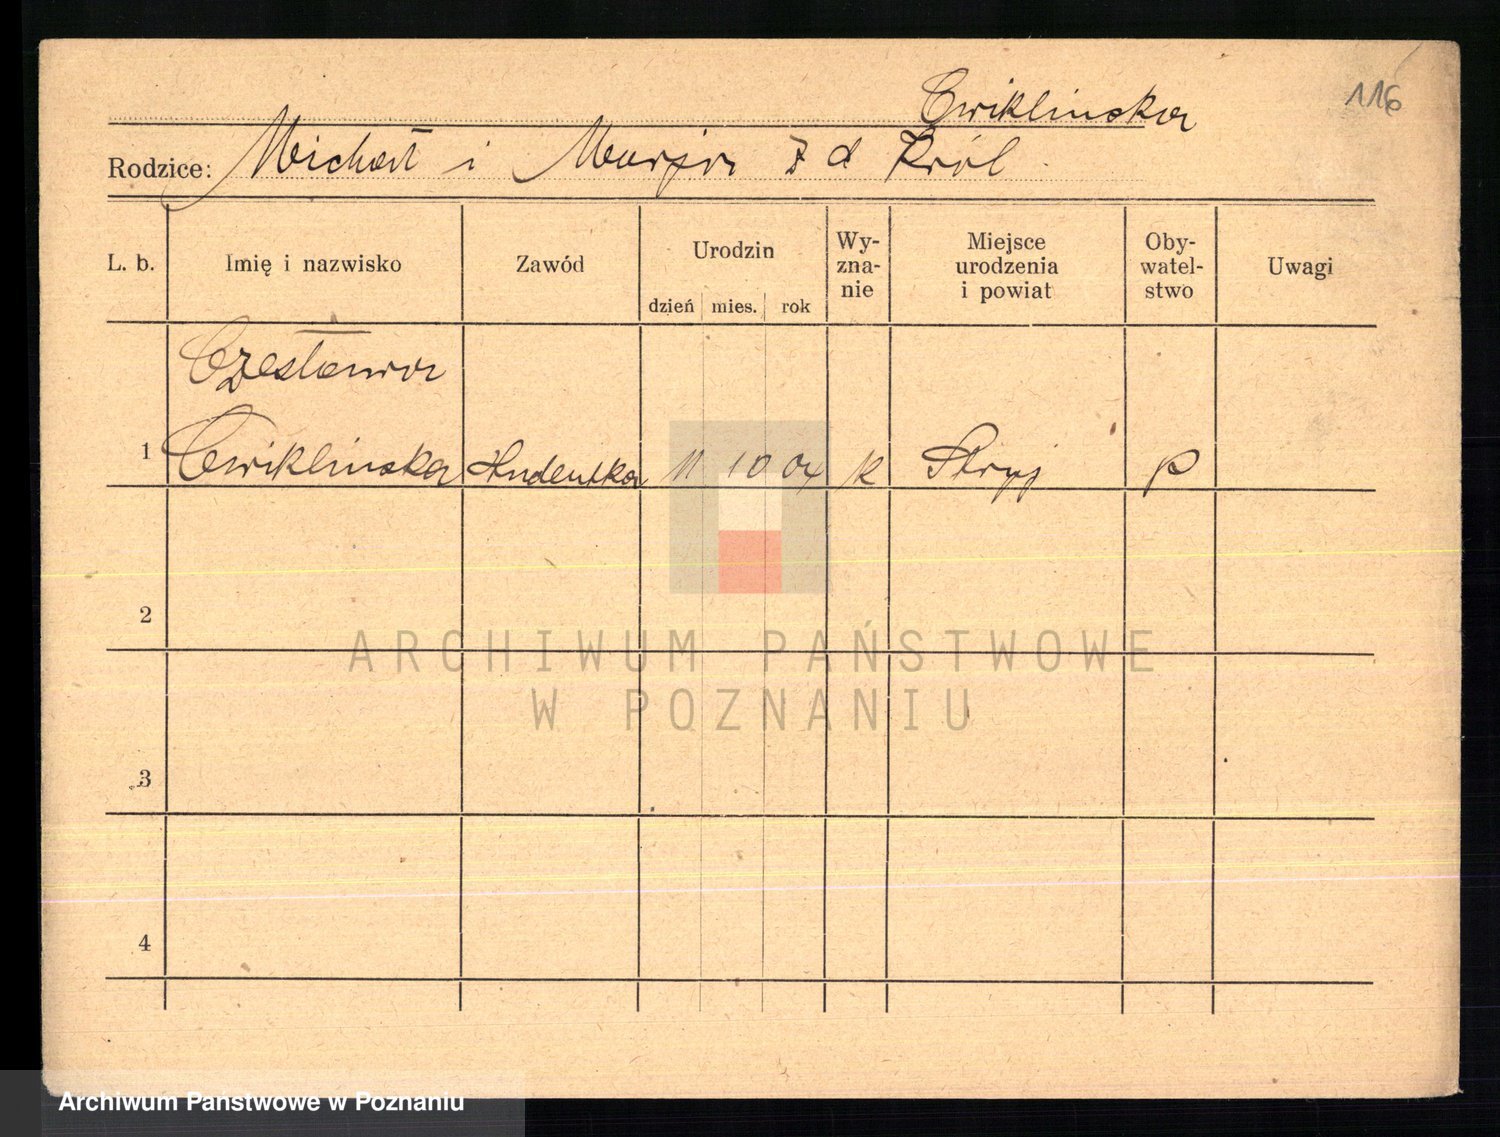 116
Cwiklinska
Rodzice: Michał i Marja z d Król
L. b. Imię i nazwisko Zawód Urodzin dzień mies. rok Wy-zna-nie Miejsce urodzenia i powiat Oby-watel-stwo Uwagi
Czesława
1 Cwiklinska studentka 11 10 04 k Stryj p
2
ARCHIWUM PAŃSTWOWE
W POZNANIU
3
4
Archiwum Państwowe w Poznaniu